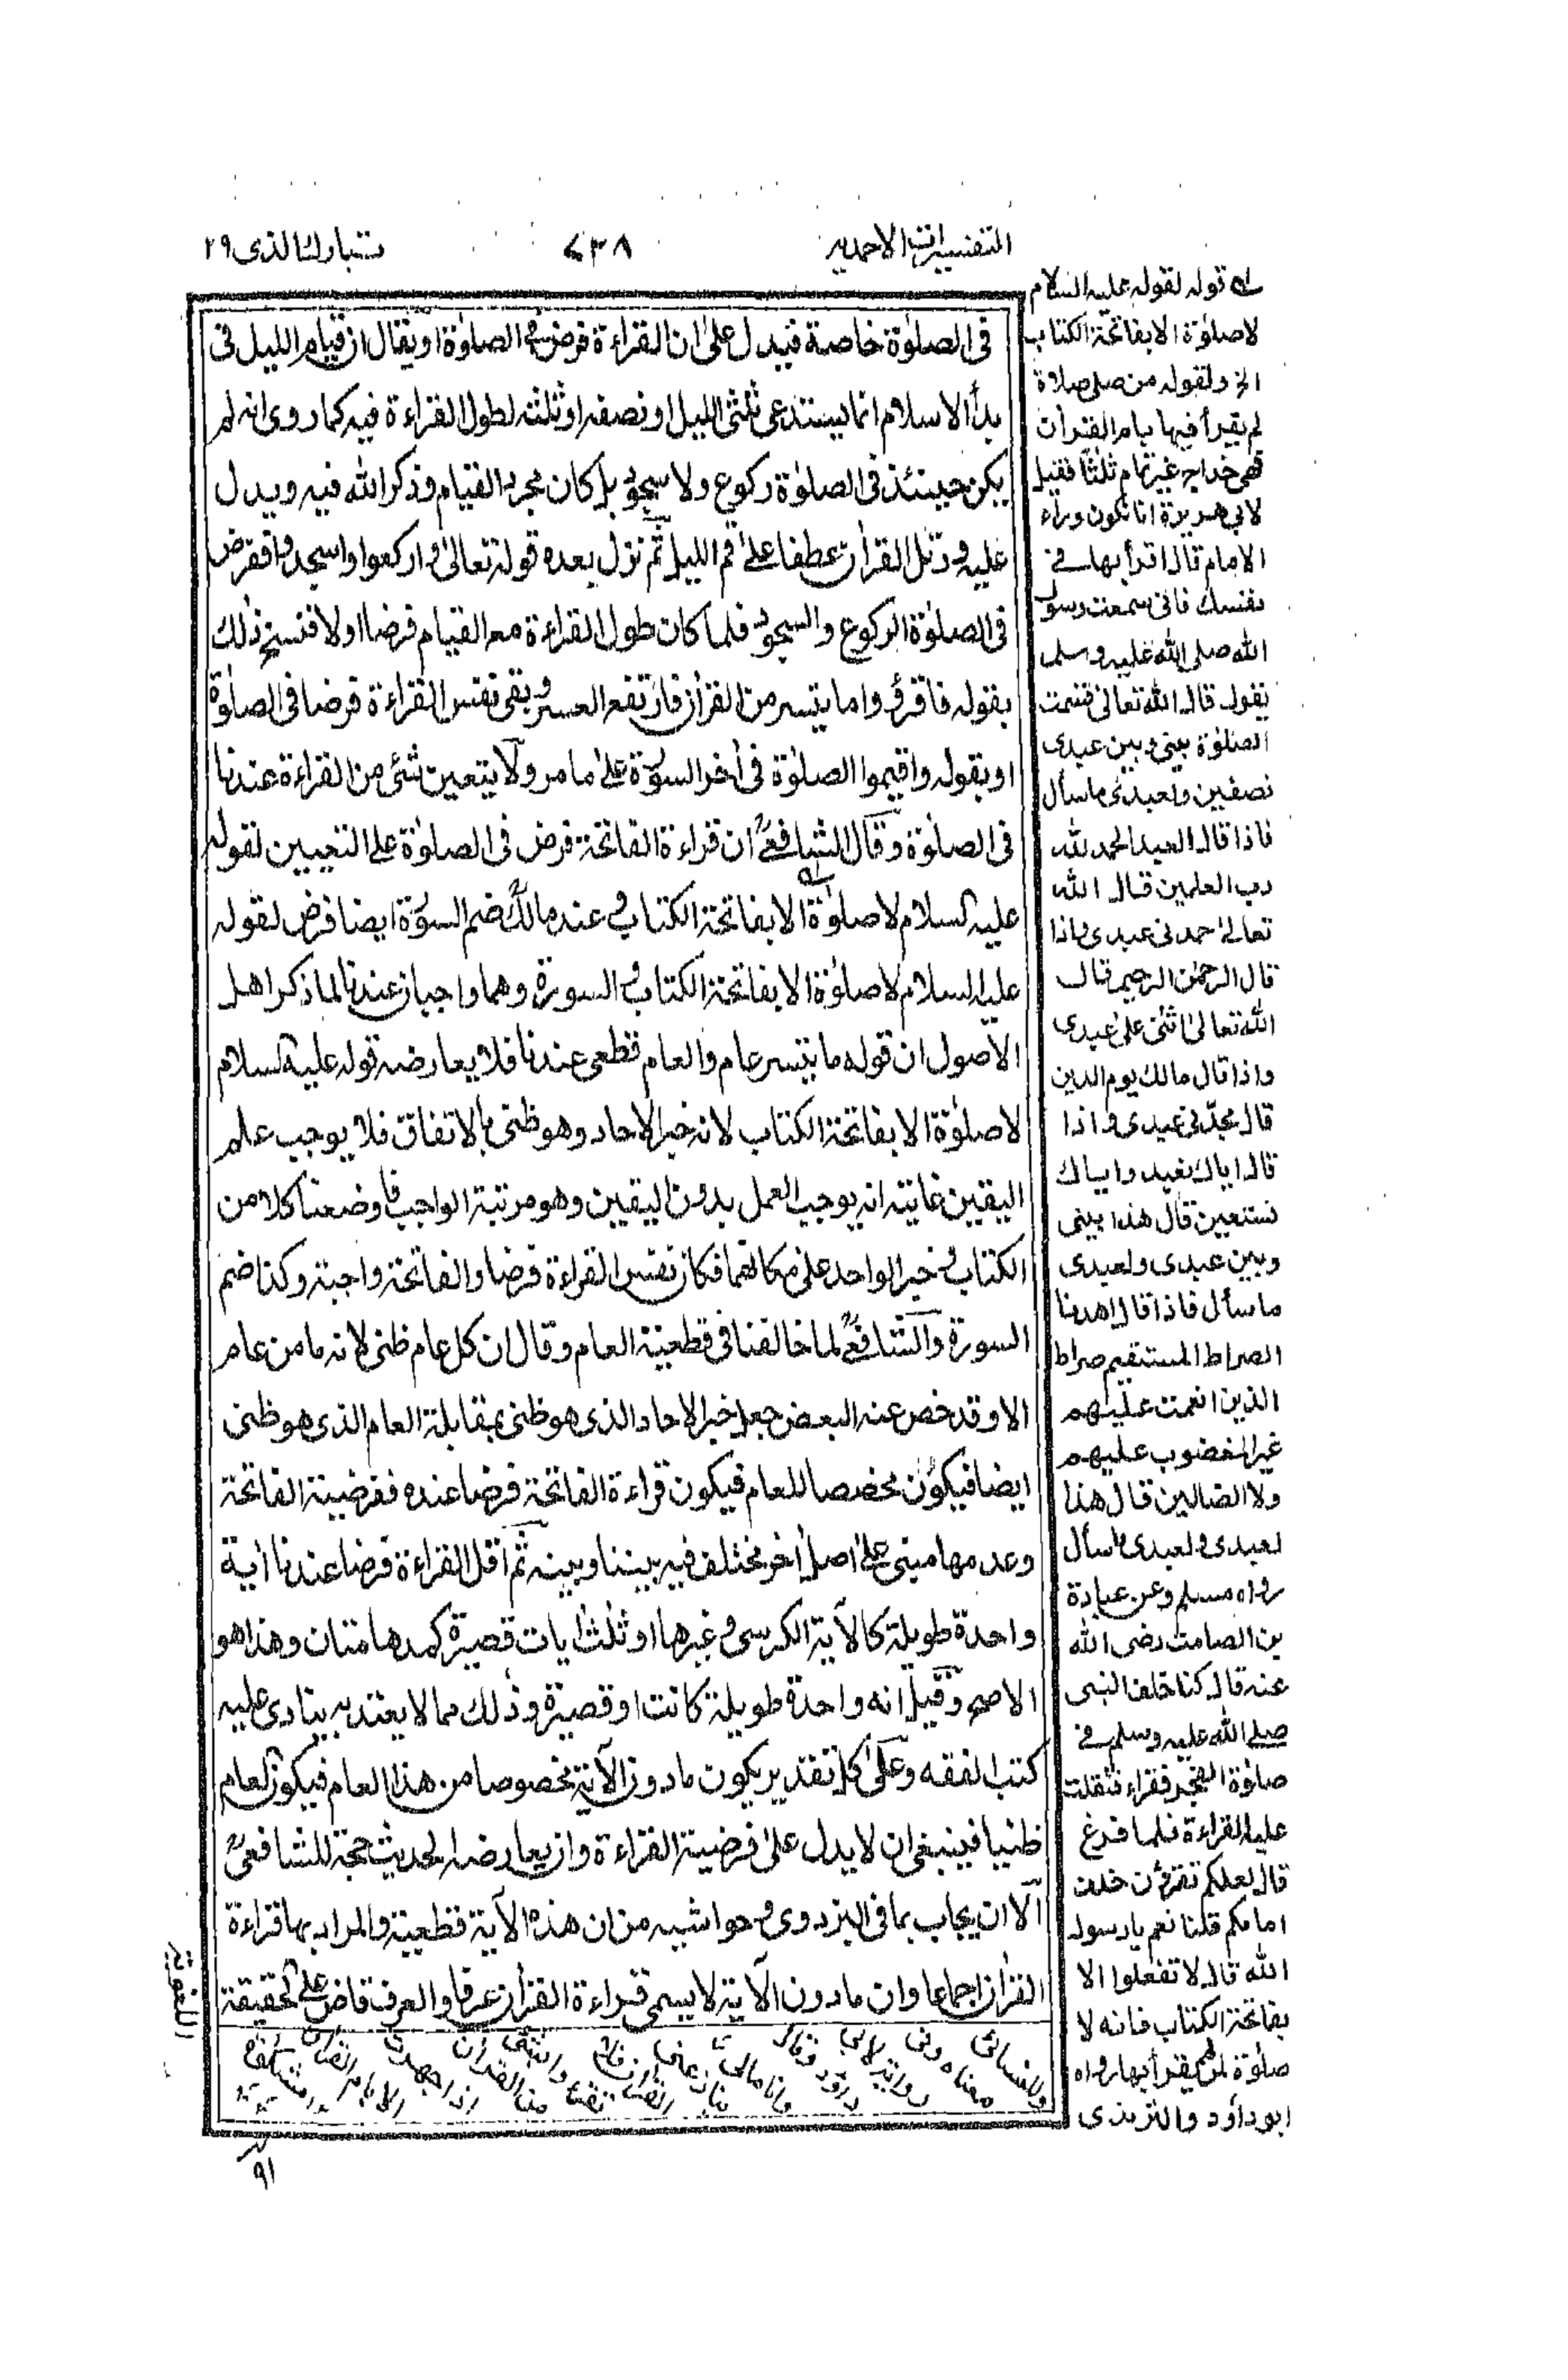 التفسيرات الاحمديه
٧٣٨
تبارك الذى ٢٩
فى الصلوٰة خاصة فيدل علىٰ ان القراءة فرض فى الصلوٰة او يقال ان قيام الليل فى
بدأ الاسلام انما يستدعى ثلثى الليل او نصفه او ثلثه لطول القراءة فيه كما روى انه لم
يكن حينئذ فى الصلوٰة ركوع ولا سجود بل كان مجرد القيام وذكر الله فيه ويدل
عليه ورتل القراٰن عطفا علىٰ قم الليل ثم نزل بعده قوله تعالىٰ واركعوا واسجدوا ففرض
فى الصلوٰة الركوع والسجود فلما كان طول القراءة مع القيام فرضا اولا فنسخ ذٰلك
بقوله فاقرؤوا ما يتيسر من القراٰن فارتفع العسر وبقى نفس القراءة فرضا فى الصلوٰة
او بقوله واقيموا الصلوٰة فى اٰخر السورة علىٰ ما مر ولا يتعين شئ من القراءة عندنا
فى الصلوٰة وقال الشافعىؒ ان قراءة الفاتحة فرض فى الصلوٰة على التعيين لقوله
عليه السلام لا صلوٰة الا بفاتحة الكتاب وعند مالكؒ ضم السورة ايضا فرض لقوله
عليه السلام لا صلوٰة الا بفاتحة الكتاب والسورة وهما واجبان عندنا لما ذكر اهل
الاصول ان قوله ما يتيسر عام والعام قطعى عندنا فلا يعارضه قوله عليه السلام
لا صلوٰة الا بفاتحة الكتاب لانه خبر الاحاد وهو ظنى بالاتفاق فلا يوجب علم
اليقين غايته انه يوجب العمل بدون اليقين وهو مرتبة الواجب فاوضعنا كلا من
الكتاب وخبر الواحد علىٰ مكانهما فكان نفس القراءة فرضا والفاتحة واجبة وكذا ضم
السورة والشافعىؒ لما خالفنا فى قطعية العام وقال ان كل عام ظنى لانه ما من عام
الا وقد خص عنه البعض جعل خبر الاحاد الذى هو ظنى بمقابلة العام الذى هو ظنى
ايضا فيكون مخصصا للعام فيكون قراءة الفاتحة فرضا عنده ففرضية الفاتحة
وعدمها مبنى علىٰ اصل اٰخر مختلف فيه بيننا وبينه ثم اقل القراءة فرضا عندنا اٰية
واحدة طويلة كالآية الكرسى وغيرها او ثلث اٰيات قصيرة كمدهامتان وهذا هو
الاصح وقيل انه واحدة طويلة كانت او قصيرة وذٰلك مما لا يعتد به ينادى عليه
كتب الفقه وعلىٰ كل تقدير يكون ما دون الآية مخصوصا من هذا العام فيكون العام
ظنيا فينبغى ان لا يدل علىٰ فرضية القراءة وان يعارضه الحديث حجة للشافعىؒ
الا ان يجاب بما فى البزدوى وحواشيه من ان هذه الآية قطعية والمراد بها قراءة
القراٰن اجماعا وان ما دون الآية لا يسمى قراءة القراٰن عرفا والعرف قاض على الحقيقة
قوله لقوله عليه السلام
لا صلوٰة الا بفاتحة الكتاب
الخ ولقوله من صلى صلاة
لم يقرأ فيها بام القراٰن
فهى خداج غير تمام ثلٰثا فقيل
لابى هريرة انا نكون وراء
الامام قال اقرأ بها فى
نفسك فانى سمعت رسول
الله صلى الله عليه وسلم
يقول قال الله تعالىٰ قسمت
الصلوٰة بينى وبين عبدى
نصفين ولعبدى ما سأل
فاذا قال العبد الحمد لله
رب العلمين قال الله
تعالىٰ حمدنى عبدى واذا
قال الرحمٰن الرحيم قال
الله تعالىٰ اثنىٰ علىٰ عبدى
واذا قال مالك يوم الدين
قال مجّدنى عبدى واذا
قال اياك نعبد واياك
نستعين قال هذا بينى
وبين عبدى ولعبدى
ما سأل فاذا قال اهدنا
الصراط المستقيم صراط
الذين انعمت عليهم
غير المغضوب عليهم
ولا الضالين قال هذا
لعبدى ولعبدى ما سأل
رواه مسلم وعن عبادة
بن الصامت رضى الله
عنه قال كنا خلف النبى
صلى الله عليه وسلم فى
صلوٰة الفجر فقراء فثقلت
عليه القراءة فلما فرغ
قال لعلكم تقرؤن خلف
امامكم قلنا نعم يا رسول
الله قال لا تفعلوا الا
بفاتحة الكتاب فانه لا
صلوٰة لمن لم يقرأ بها رواه
ابو داؤد والترمذى
والنسائى
معناه وفى
رواية لابى
داؤد وقال
وانا
القراٰن
اذا جهرت
الا بام القراٰن